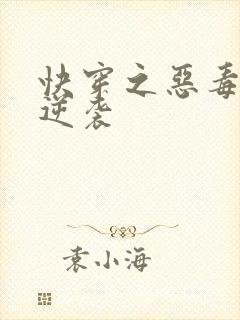 快穿之惡毒
逆袭
袁小海